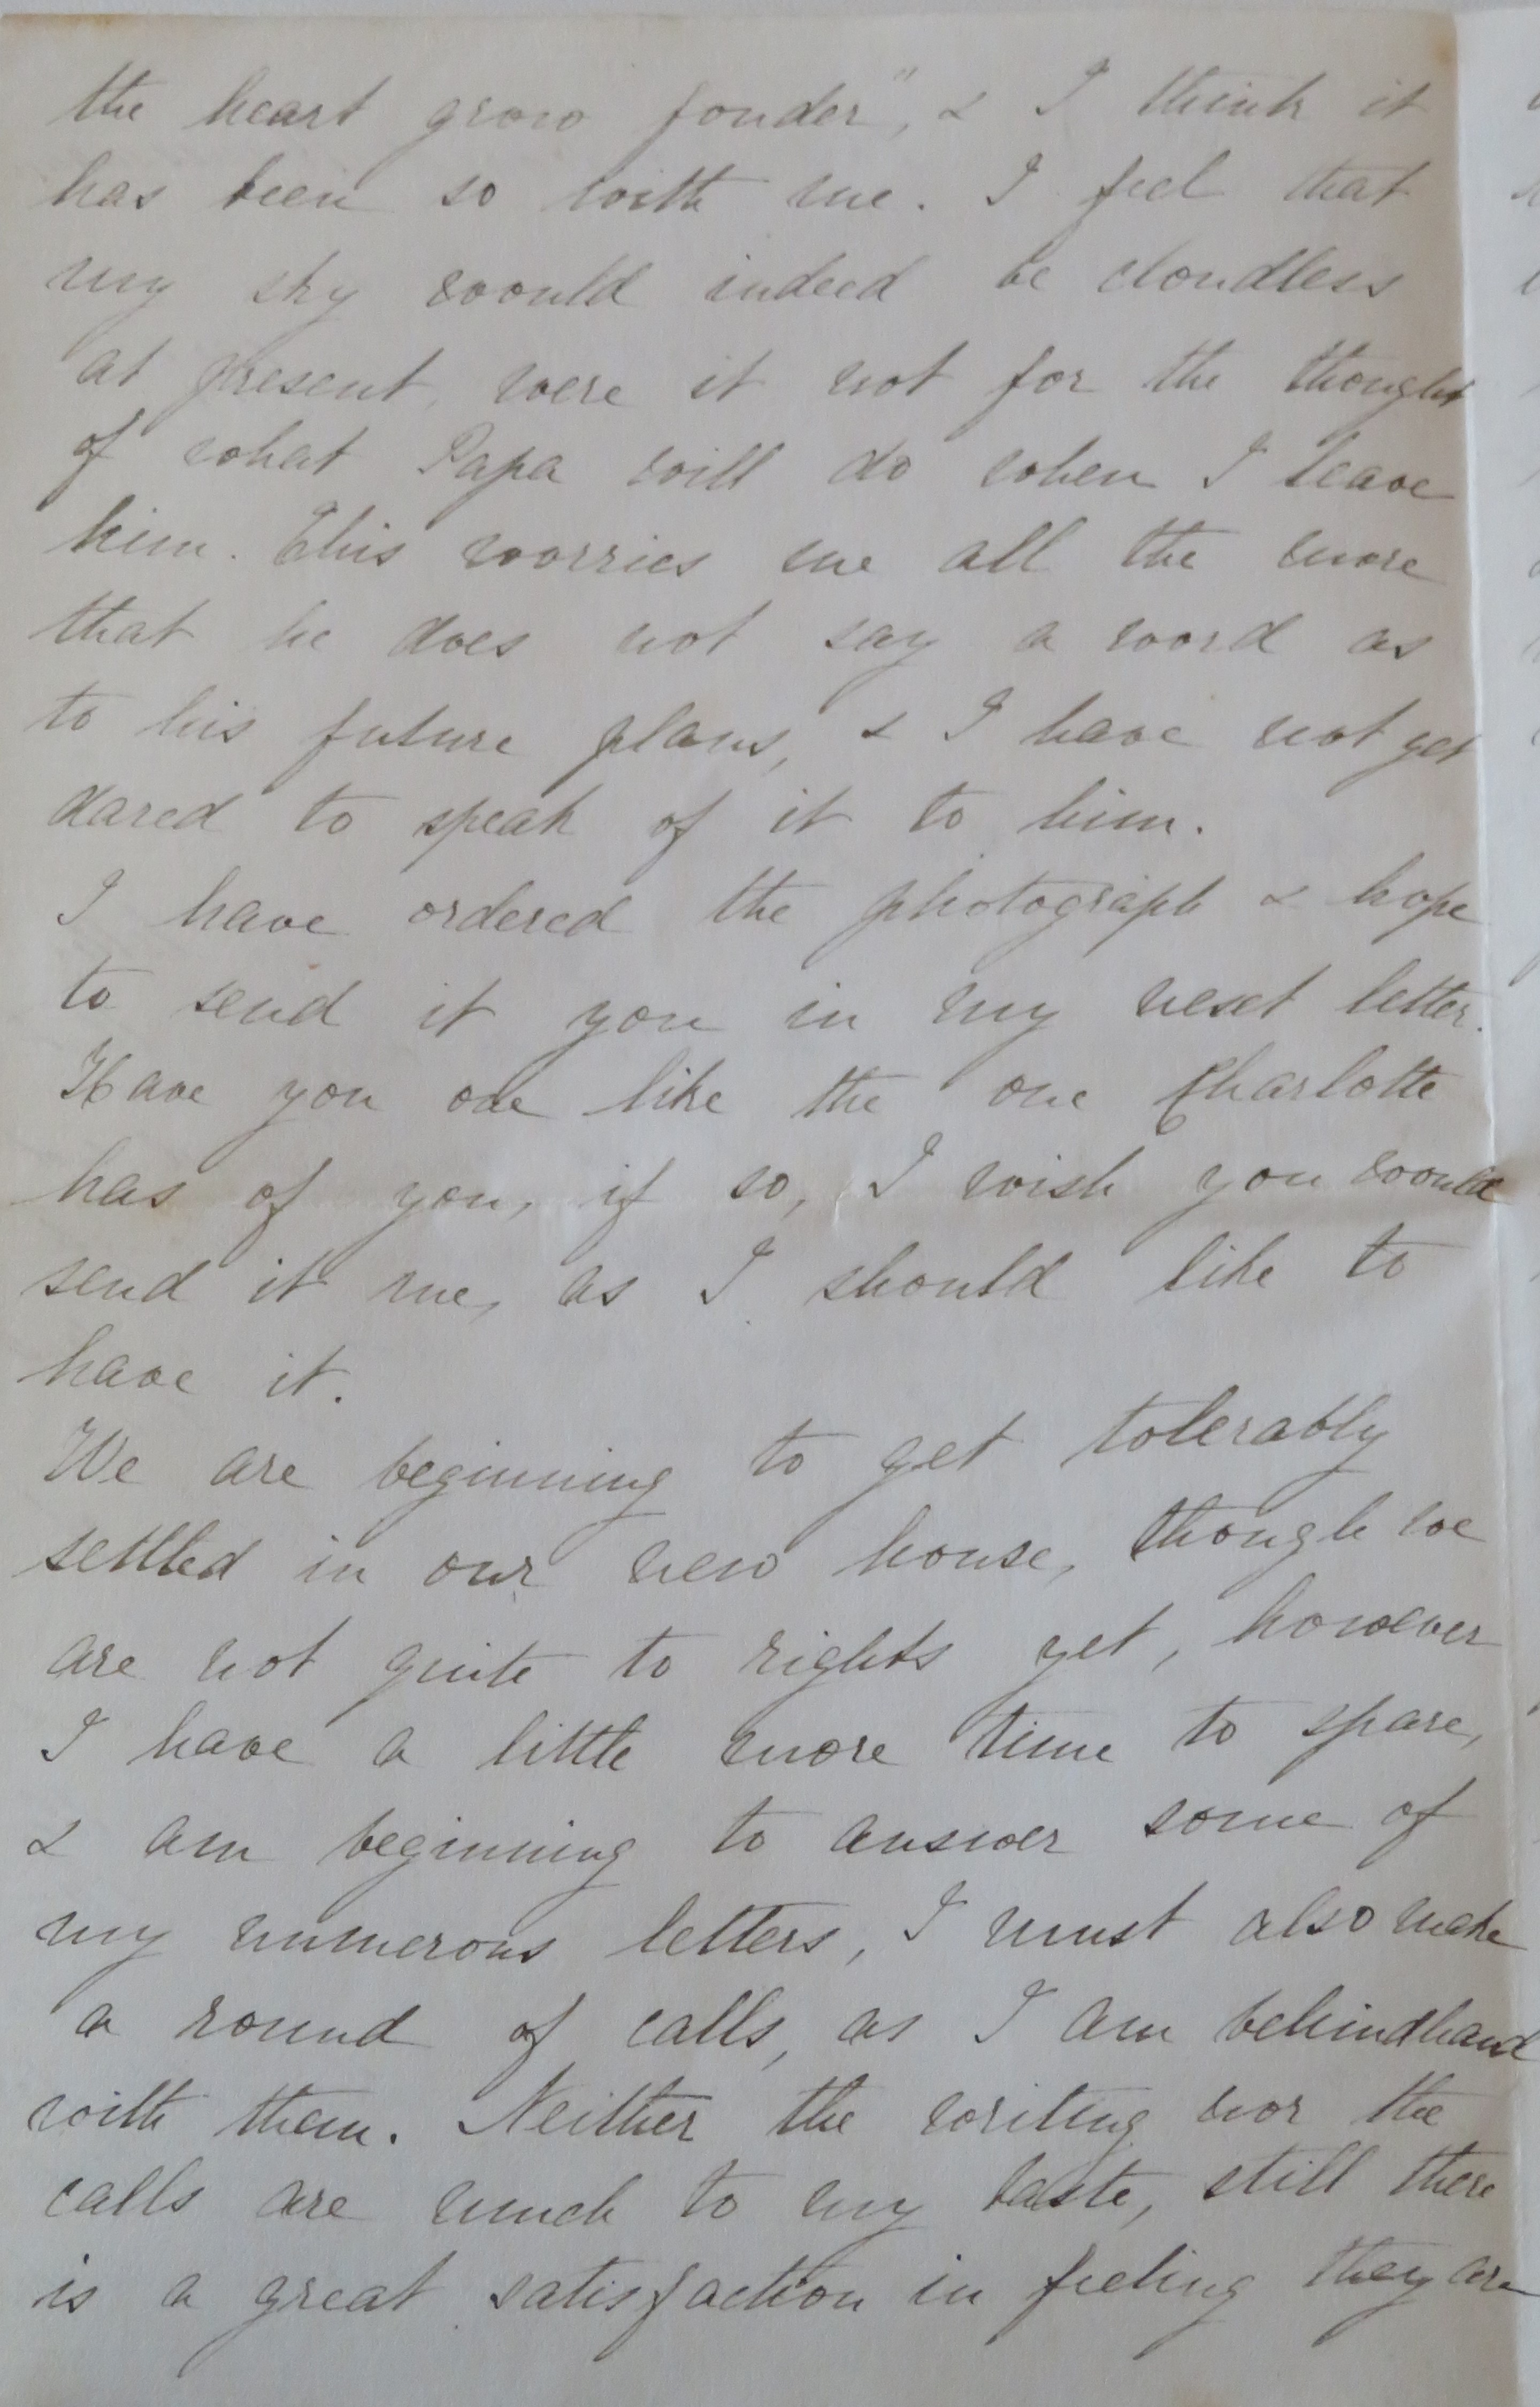 the heart grow fonder", & I think it
has been so with me. I feel that
my sky would indeed be cloudless
at present, were it not for the thought
of what Papa will do when I leave
him. This worries me all the more
that he does not say a word as
to his future plans, & I have not yet
dared to speak of it to him.
I have ordered the photograph & hope
to send it you in my next letter.
Have you one like the one Charlotte
has of you, if so, I wish you would
send it me, as I should like to
have it.
We are beginning to get tolerably
settled in our new house, though we
are not quite to rights yet, however
I have a little more time to spare,
& am beginning to answer some of
my numerous letters, I must also make
a round of calls, as I am behindhand
with them. Neither the writing nor the
calls are much to my taste, still there
is a great satisfaction in feeling they are